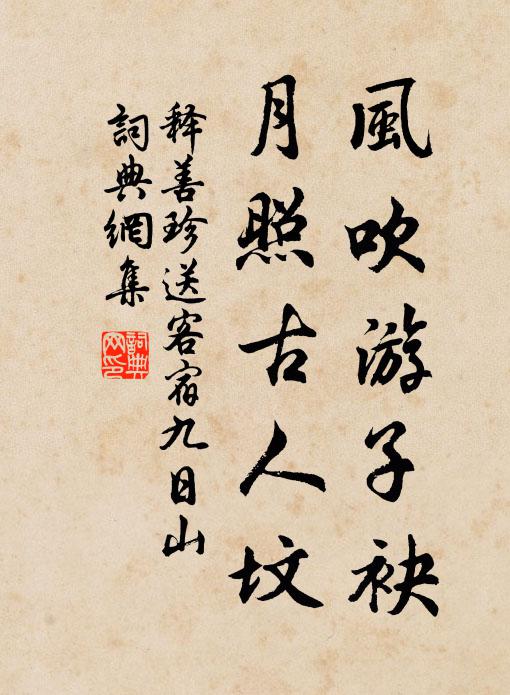 風吹游子袂
月照古人墳
释善珍送客宿九日山
詞典網集
詞典網印